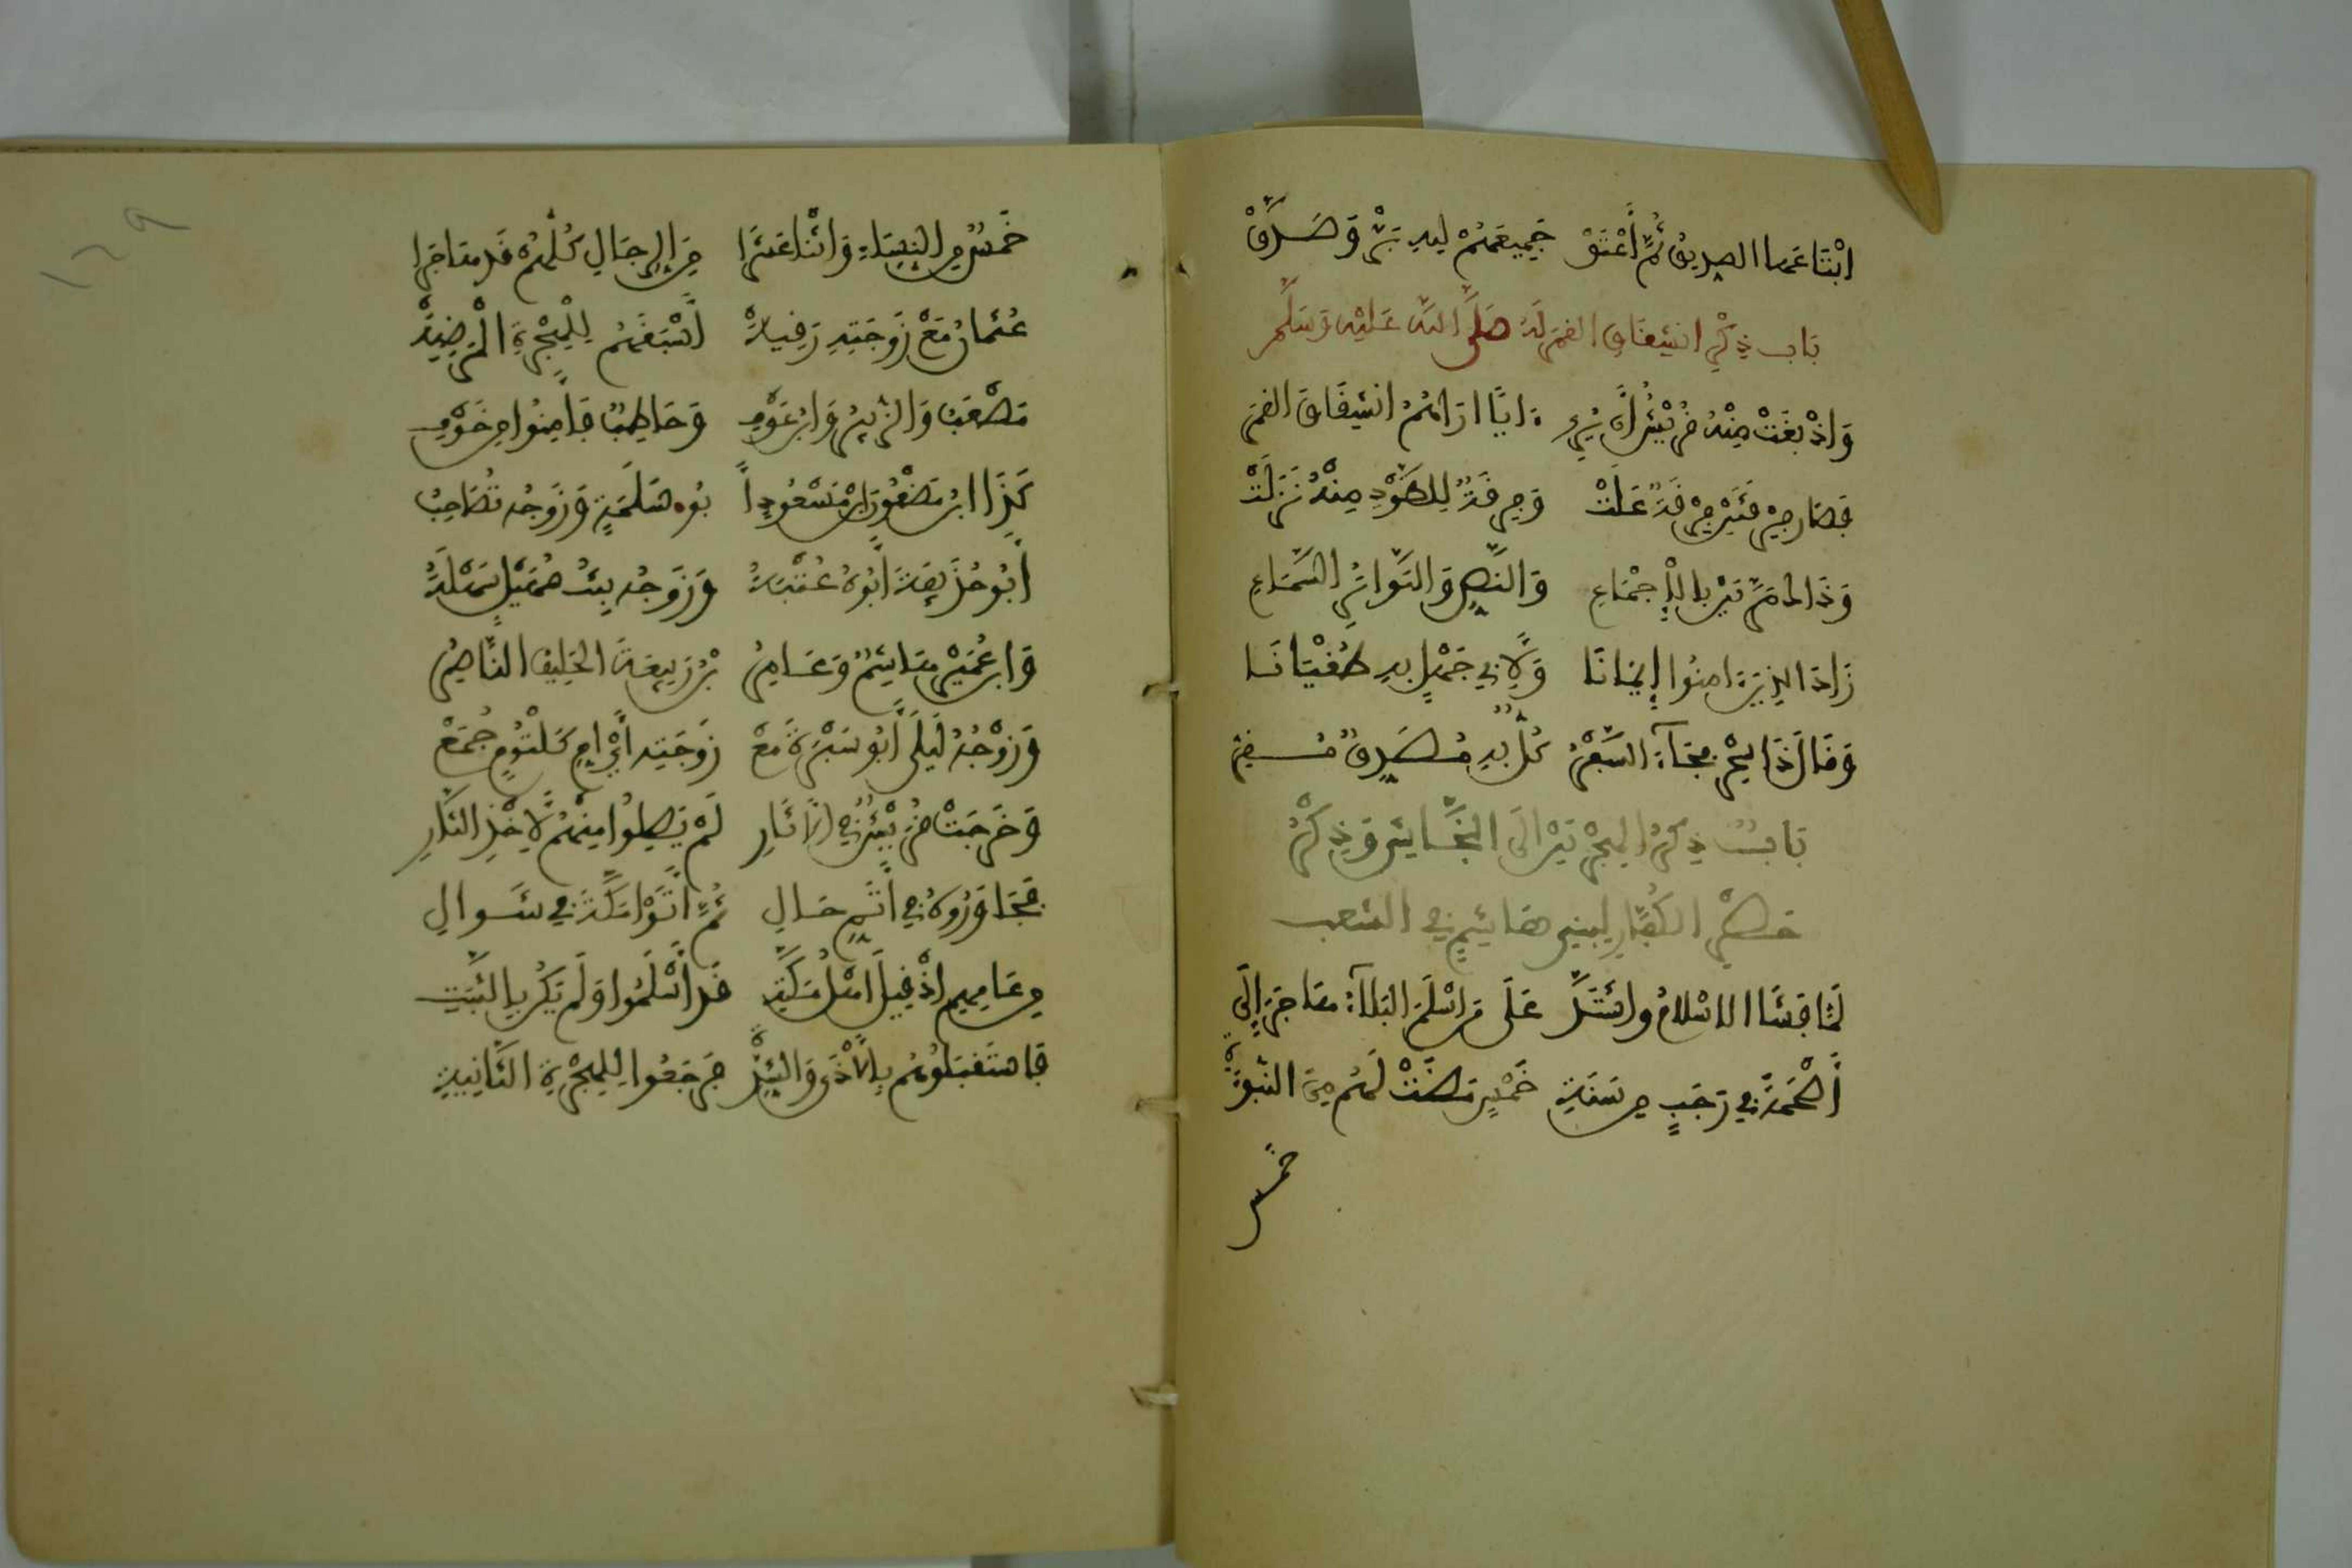 اِبْتَاعَهَا الصِّدِيقُ ثُمَّ أَعْتَقْ جَمِيعَهُمْ لِلهِ بَرَّ وَصَدَقْ
بَاب ذِكْرِ انْشِقَاقِ القَمَرِ لَهُ صَلَّى اللهُ عَلَيْهِ وَسَلَّم
وَإِذْ بَغَتْ مِنْهُ قُرَيْشٌ أَنْ يُرِي ءَايًا ارَاهُمُ انْشِقَاقَ القَمَرِ
فَصَارَ فِرْقَتَيْنِ فِرْقَةٌ عَلَتْ وَفِرْقَةٌ لِلطَّوْدِ مِنْهُ نَزَلَتْ
وَذَاكَ مَرَّتَيْنِ بِالْإِجْمَاعِ وَالنَّصِّ وَالتَّوَاتُرِ السَّمَاعِ
زَادَ الذِينَ ءَامَنُوا إِيمَانًا وَلِأَبِي جَهْلٍ بِهِ طُغْيَانَا
وَقَالَ ذَا سِحْرٌ فَجَاءَ السَّفْرُ كُلٌّ بِهِ مُصَدِّقٌ مُقِرُّ
بَابُ ذِكْرِ الهِجْرَتَيْنِ إِلَى النَّجَاشِي وَذِكْرُ
حَصْرِ الكُفَّارِ لِبَنِي هَاشِمٍ فِي الشعب
لَمَّا فَشَا الاسْلَامُ وَاشْتَدَّ عَلَى مَنْ اسْلَمَ البَلَاءُ هَاجَرَ إِلَى
أَصْحَمَةَ فِي رَجَبٍ مِنْ سَنَةِ خَمْسٍ مَضَتْ لَهُمْ مِنَ النُّبُوَّةِ
خمس
خَمْسٌ مِنَ النِّسَاءِ وَاثْنَا عَشَرَا مِنَ الرِّجَالِ كُلُّهُمْ قَدْ هَاجَرَا
عُثْمَانُ مَعْ زَوْجَتِهِ رُقِيَّةْ أَسْبَقُهُمْ لِلْهِجْرَةِ الْمَرْضِيَّةْ
مُصْعَبُ وَالزُّبَيْرُ وَابْنُ عَوْفِ وَحَاطِبٌ فَأَمِنُوا مِنْ خَوْفِ
كَذَا ابْنُ مَظْعُونٍ ابْنُ مَسْعُودٍ أَبُو سَلَمَةٍ وَزَوْجُهُ تُصَاحِبُ
أَبُو حُذَيْفَةَ أَبُوهُ عُتْبَةُ وَزَوْجُهُ بِنْتُ سُهَيْلٍ سَهْلَةُ
وَابْنُ عُمَيْرٍ هَاشِمٌ وَعَامِرُ بْنُ رَبِيعَةَ الحَلِيفُ النَّاصِرُ
وَزَوْجُهُ لَيْلَى أَبُو سَبْرَةَ مَعْ زَوْجَتِهِ أَيْ امِّ كَلْثُومٍ جُمَعْ
وَخَرَجَتْ قُرَيْشٌ فِي الآثَارِ لَمْ يَصِلُوا مِنْهُمْ لِأَخْذِ الثَّارِ
فَجَاوَرُوهُ فِي أَتَمِّ حَالِ ثُمَّ أَتَوْا مَكَّةَ فِي شَوَّالِ
مِنْ عَامِهِمْ إِذْ قِيلَ اهْلُ مَكَّةِ قَدْ أَسْلَمُوا وَلَمْ يَكُنْ بِالثَّبَتِ
فَاسْتَقْبَلُوهُمْ بِالْأَذَى وَالشِّدَّةِ فَرَجَعُوا لِلْهِجْرَةِ الثَّانِيَةِ
١٢٩